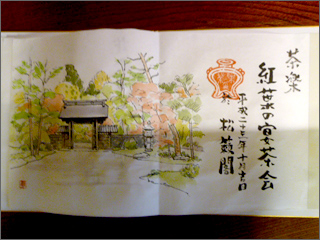 茶楽
紅葉の宴茶会
平成二十三年十月吉日
於
松籟閣